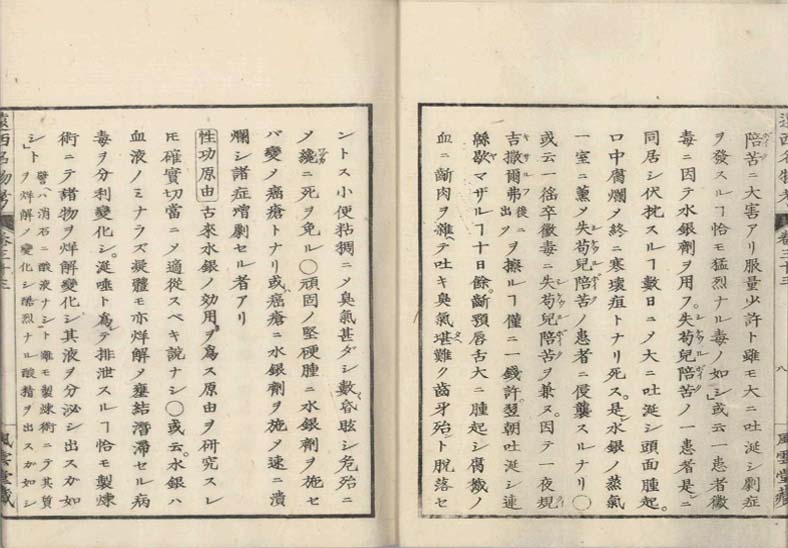 陪苦ニ大害アリ服量少許ト雖モ大ニ吐涎シ劇症
ヲ發スルヿ恰モ猛烈ナル毒ノ如シ或云一患者黴
毒ニ因テ水銀劑ヲ用フ失苟兒陪苦ノ一患者是ニ
同居シ伏枕スルヿ數日ニ乄大ニ吐涎シ頭面腫起。
口中腐爛乄終ニ寒壊疽トナリ死ス。是水銀ノ蒸氣
一室ニ薫乄失苟兒陪苦ノ患者ニ侵襲スルナリ〇
或云一徭卒黴毒ニ失苟兒陪苦ヲ兼ス。因テ一夜規
吉撒爾弗後ニ出ツヲ擦ルヿ僅ニ一錢許。翌朝吐涎シ連
緜歇マザルヿ十日餘。齗顎唇舌大ニ腫起シ腐敗乄
血ニ齗肉ヲ雜テ吐キ臭氣堪難ク齒牙殆ト脱落セ
ントス小便粘稠ニ乄臭氣甚ダシ數昏眩シ危殆ニ
乄纔ニ死ヲ免ル〇頑固ノ堅硬腫ニ水銀劑ヲ施セ
バ變乄癌瘡トナリ或癌瘡ニ水銀劑ヲ施乄速ニ潰
爛シ諸症増劇セル者アリ
性功原由 古來水銀ノ効用ヲ爲ス原由ヲ研究スレ
𪜈確實切當ニ乄適從スベキ説ナシ〇或云。水銀ハ
血液ノミナラズ凝體モ亦烊解乄壅結濳滯セル病
毒ヲ分利變化シ。涎唾ト爲テ排泄スルヿ恰モ製煉
術ニテ諸物ヲ烊解變化シ其液ヲ分泌シ出スカ如
シト 譬ハ消石ニ酸液ナシト雖モ製煉術ニテ其質
ヲ烊解乄變化シ酷烈ナル酸精ヲ出スカ如シ
遠西名物考
卷三十三
八
風雲堂藏
遠西名物考
卷三十三
風雲堂藏